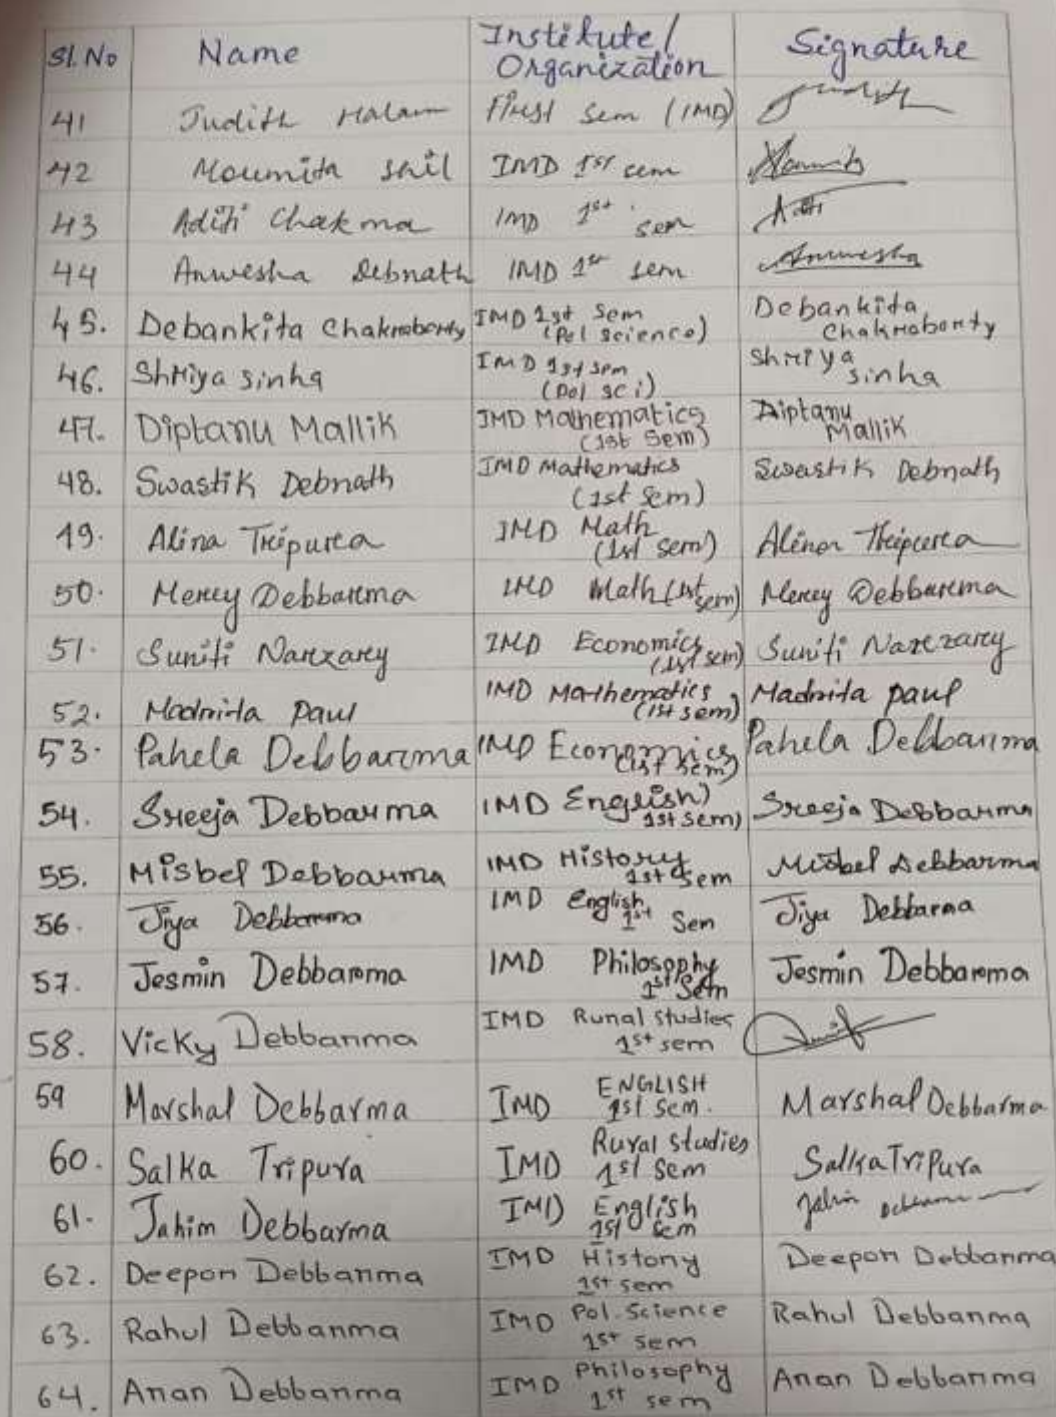 Sl. No Name Institute/ Organization Signature
41 Judith Halam First Sem (IMD) Judith
42 Moumita Shil IMD 1st sem Moumita
43 Aditi Chakma IMD 1st sem Aditi
44 Anwesha Debnath IMD 1st sem Anwesha
45. Debankita Chakraborty IMD 1st Sem (Pol science) Debankita Chakraborty
46. Shriya sinha IMD 1st sem (pol sci) Shriya sinha
47. Diptanu Mallik IMD Mathematics (1st Sem) Diptanu Mallik
48. Swastik Debnath IMD Mathematics (1st Sem) Swastik Debnath
49. Alina Tripura IMD Math (1st Sem) Alina Tripura
50. Mercy Debbarma IMD Math (1st sem) Mercy Debbarma
51. Suniti Narzary IMD Economics (1st sem) Suniti Narzary
52. Madhita paul IMD Mathematics (1st sem) Madhita paul
53. Pahela Debbarma IMD Economics (1st sem) Pahela Debbarma
54. Sreeja Debbarma IMD English) 1st sem) Sreeja Debbarma
55. Misbel Debbarma IMD History 1st Sem Misbel Debbarma
56. Jiya Debbarma IMD English 1st Sem Jiya Debbarma
57. Jesmin Debbarma IMD Philosophy 1st Sem Jesmin Debbarma
58. Vicky Debbarma IMD Rural studies 1st sem
59 Marshal Debbarma IMD ENGLISH 1st Sem. Marshal Debbarma
60. Salka Tripura IMD Rural studies 1st Sem Salka Tripura
61. Jahim Debbarma IMD English 1st Sem Jahim Debbarma
62. Deepon Debbarma IMD History 1st sem Deepon Debbarma
63. Rahul Debbarma IMD Pol. Science 1st sem Rahul Debbarma
64. Anan Debbarma IMD Philosophy 1st sem Anan Debbarma